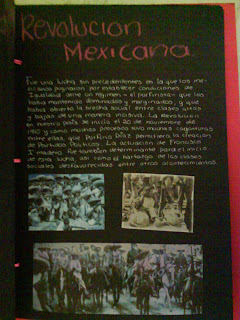 Revolución
Mexicana
Fue una lucha sin precedentes en la que los me-
xicanos pugnaron por establecer condiciones de
igualdad ante un régimen - el porfirista - que los
había mantenido dominados y marginados, y que
había abierto la brecha social entre clases altas
y bajas de una manera incisiva. La Revolución
en nuestro país se inició el 20 de noviembre de
1910 y como muchos procesos tuvo muchas coyunturas
entre ellas, que Porfirio Díaz permitiera la creación
de Partidos Políticos. La actuación de Francisco
I madero fue también determinante para el inicio
de esta lucha, así como el hartazgo de las clases
sociales desfavorecidas entre otros acontecimientos.